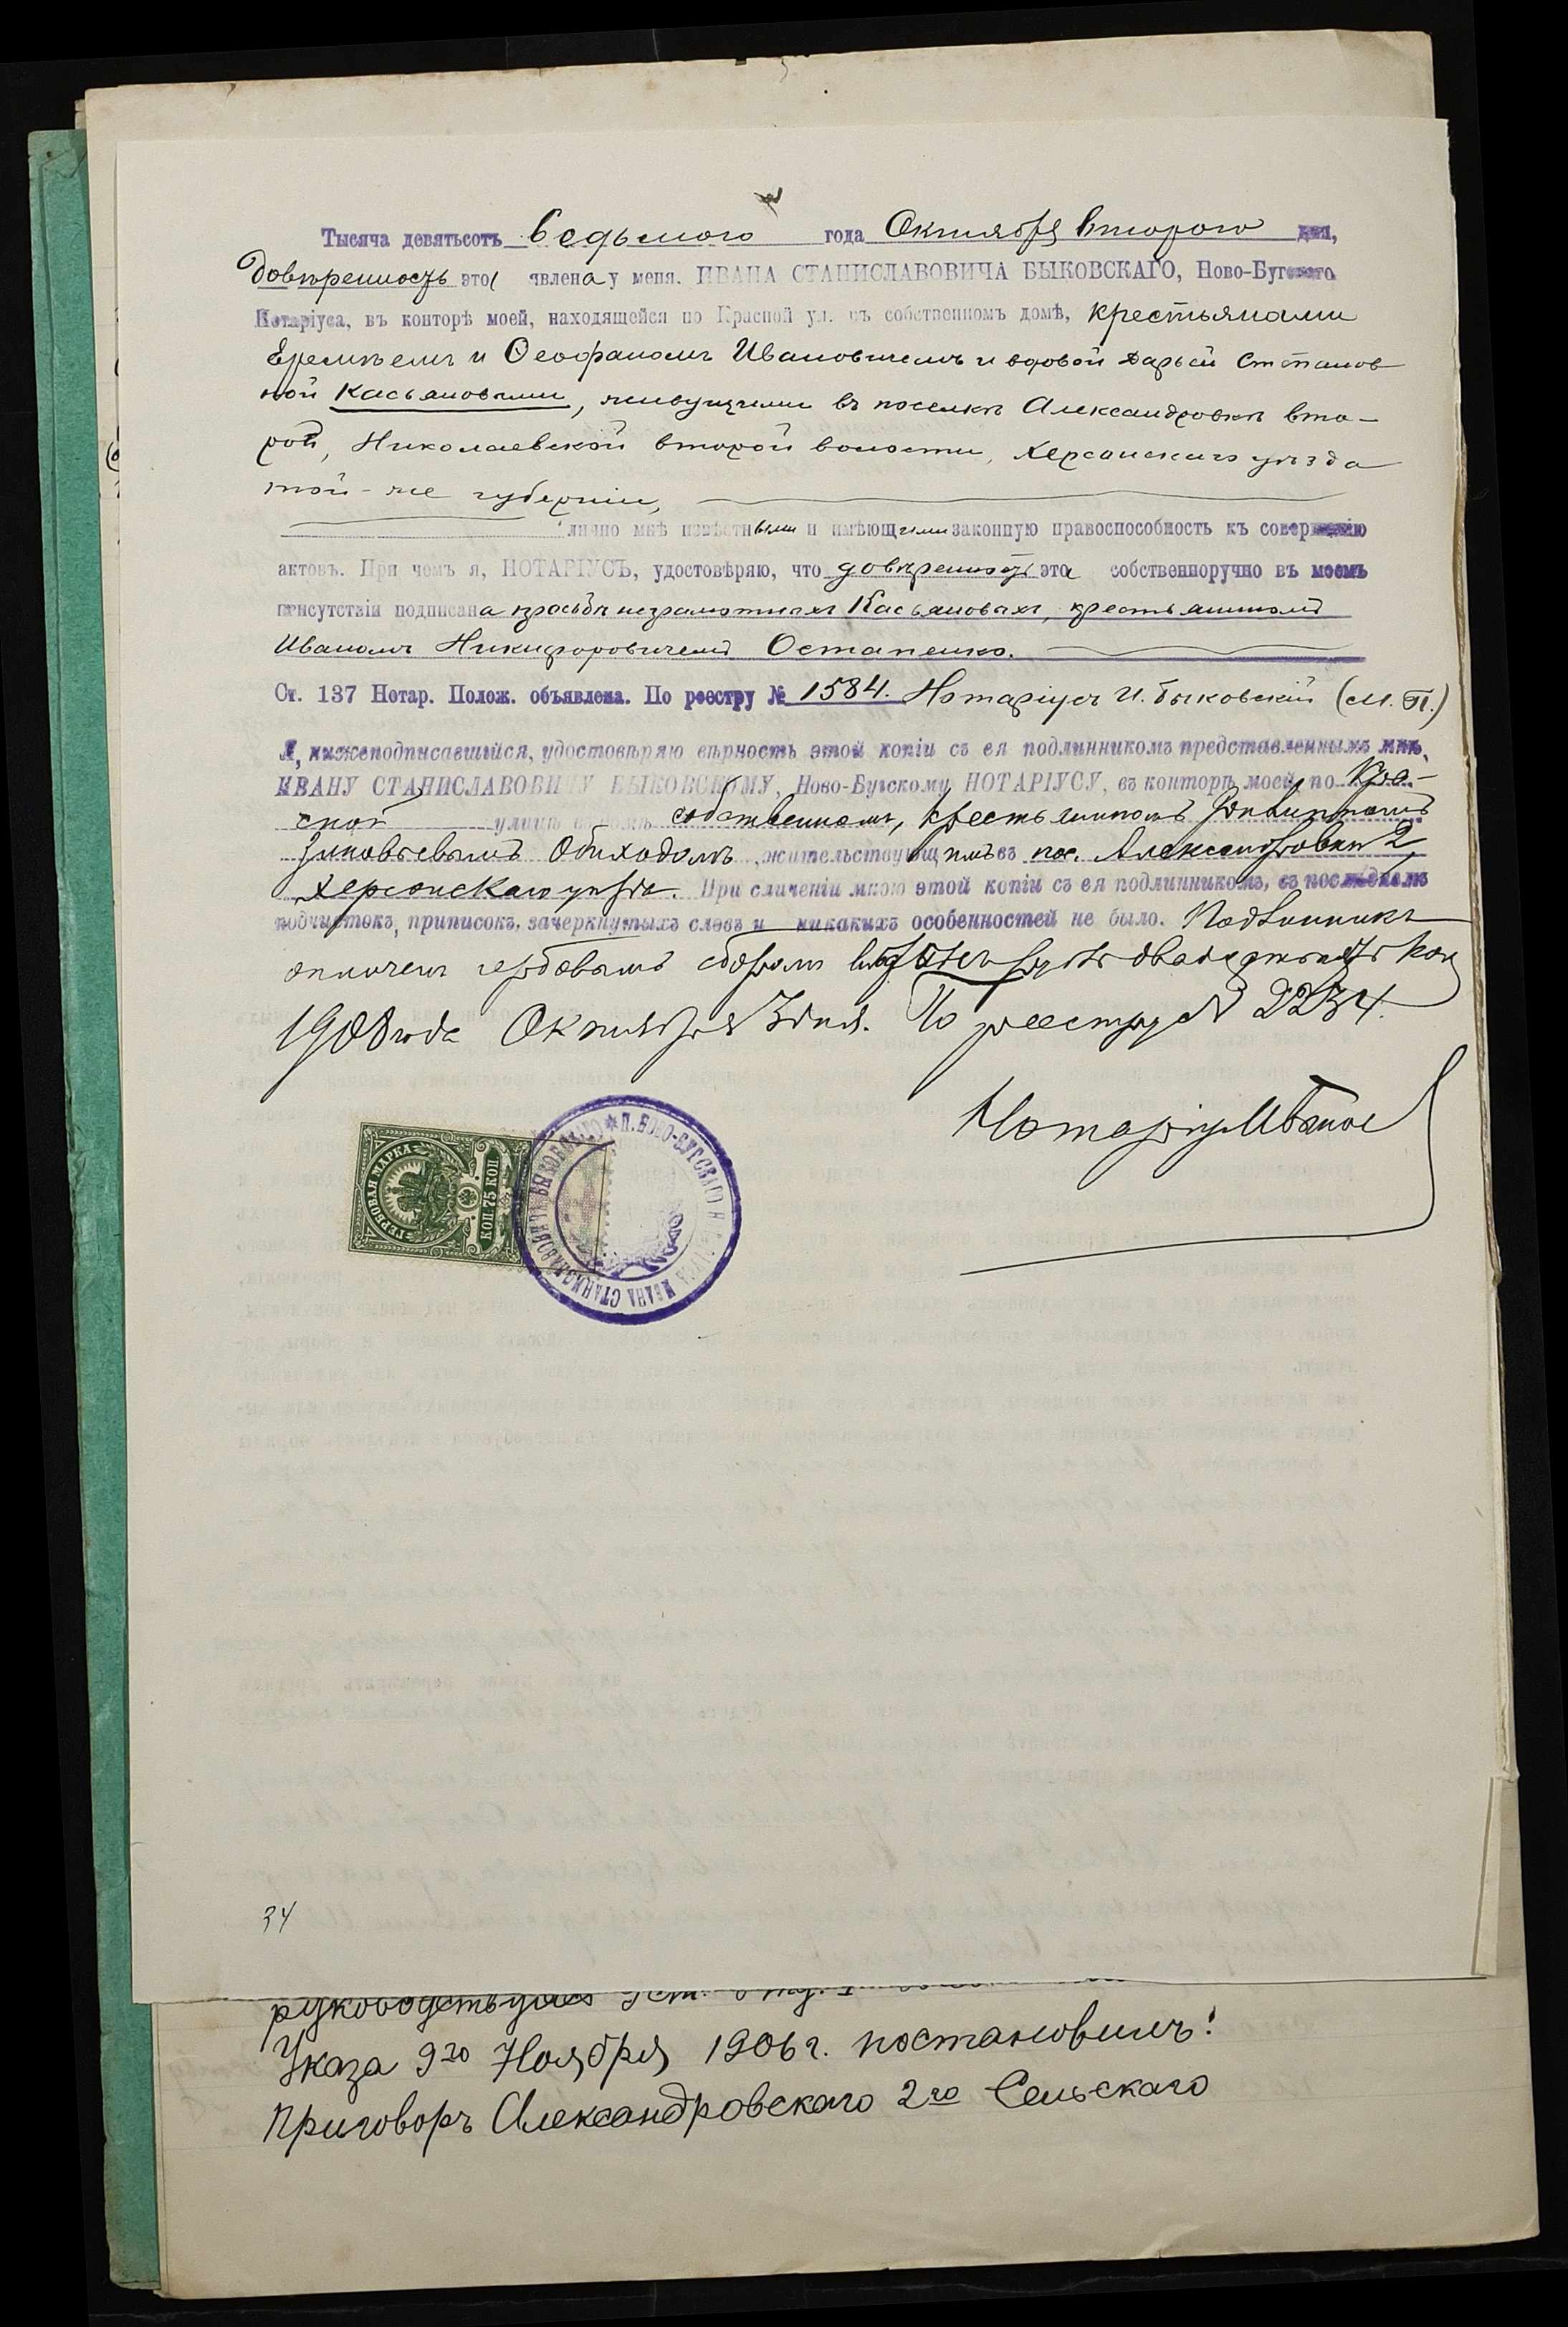 Тысяча девятьсотъ седьмого года Октября второго дня,
довѣренность эта явлена у меня. ИВАНА СТАНИСЛАВОВИЧА БЫКОВСКАГО, Ново-Бугскаго
Нотаріуса, въ конторѣ моей, находящейся по Красной ул. въ собственномъ домѣ, крестьянами
Еремѣемъ и Ѳеофаномъ Ивановичемъ и вдовой Дарьей Степанов
ной Касьяновыми, живущими въ поселкѣ Александровкѣ вто-
рой, Николаевской второй волости, Херсонскаго уѣзда
той-же губерніи,
лично мнѣ извѣстными и имѣющими законную правоспособность къ совершенію
актовъ. При чемъ я, НОТАРІУСЪ, удостовѣряю, что довѣренность эта собственноручно въ моемъ
присутствіи подписана просьбѣ неграмотныхъ Касьяновыхъ, крестьяниномъ
Иваномъ Никифоровичемъ Остапенко.
Ст. 137 Нотар. Полож. объявлена. По реестру № 1584. Нотаріусъ И. Быковскій (М. П.)
Я, нижеподписавшійся, удостовѣряю вѣрность этой копіи съ ея подлинникомъ представленнымъ мнѣ,
ИВАНУ СТАНИСЛАВОВИЧУ БЫКОВСКОМУ, Ново-Бугскому НОТАРІУСУ, въ конторѣ моей, по Кра-
сной улицѣ въ домѣ собственномъ, крестьяниномъ
Зиновьевымъ Обиходомъ, жительствующимъ въ пос. Александровкѣ 2,
Херсонскаго уѣзда. При сличеніи мною этой копіи съ ея подлинникомъ, въ послѣднемъ
подчистокъ, приписокъ, зачеркнутыхъ словъ и никакихъ особенностей не было. Подлинникъ
оплоченъ гербовымъ сборомъ двадцать пять коп
1908 года Октября 3 дня. По реестру № 2234.
Нотаріусъ Иванъ
ГЕРБОВАЯ МАРКА
75 КОП
П. НОВО-БУГСКАГО НОТАРІУСА ИВАНА СТАНИСЛАВОВИЧА БЫКОВСКАГО
34
руководствуясь
Указа 9го Ноября 1906 г. постановилъ:
Приговоръ Александровскаго 2го Сельскаго